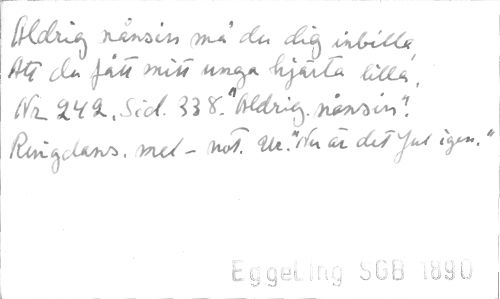 Aldrig nånsin må du dig inbilla,
Att du fått mitt unga hjärta lilla,
Nr 242. Sid. 338. "Aldrig nånsin".
Ringdans. mel - not. Ur. "Nu är det Jul igen."
Eggeling SGB 1890